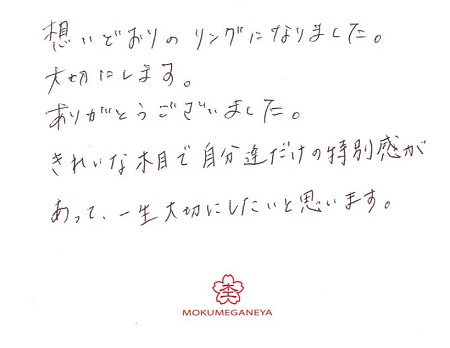 想いどおりのリングになりました。
大切にします。
ありがとうございました。
きれいな木目で自分達だけの特別感が
あって、一生大切にしたいと思います。
杢
MOKUMEGANEYA